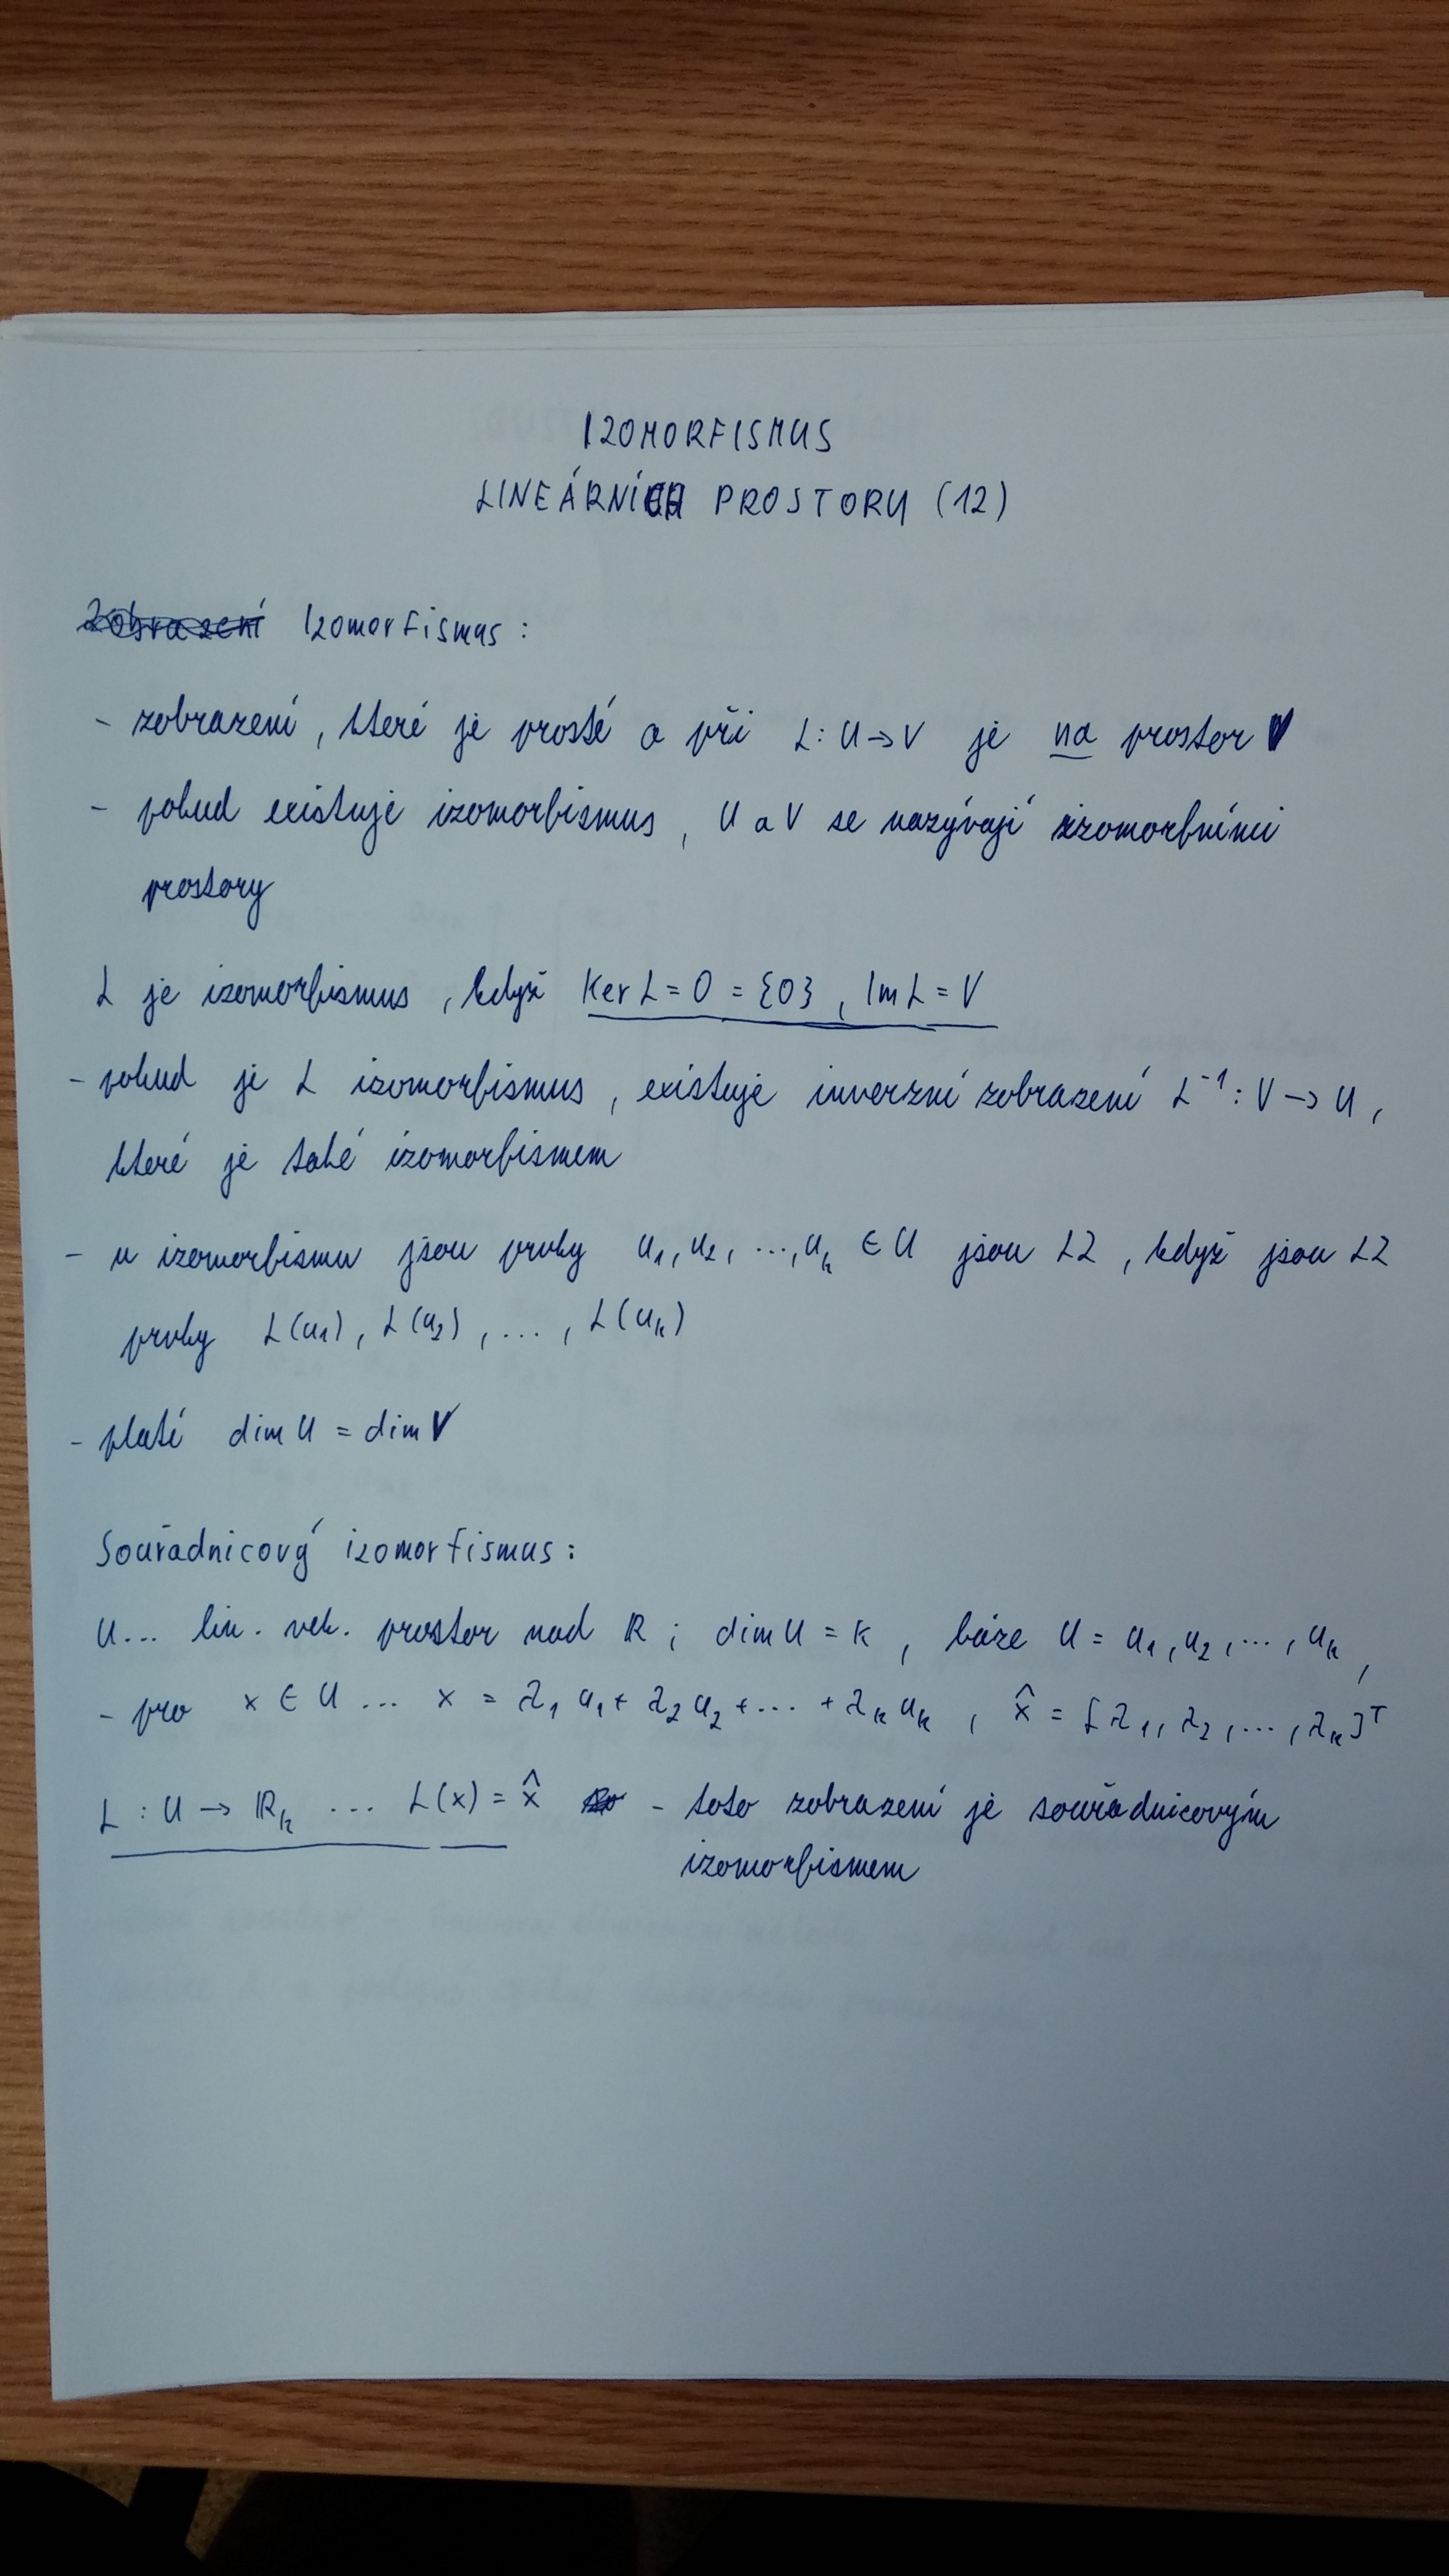 IZOMORFISMUS
LINEÁRNÍCH PROSTORU (12)
Izomorfismus :
- zobrazení , které je prosté a při L : U → V je na prostor V
- pokud existuje izomorfismus , U a V se nazývají izomorfními
prostory
L je izomorfismus , když Ker L = O = {O} , Im L = V
- pokud je L izomorfismus , existuje inverzní zobrazení L⁻¹ : V → U ,
které je také izomorfismem
- u izomorfismu jsou prvky u₁, u₂, ..., uₖ ∈ U jsou LZ , když jsou LZ
prvky L(u₁) , L(u₂) , ... , L(uₖ)
- platí dim U = dim V
Souřadnicový izomorfismus :
U... lin. vek. prostor nad ℝ ; dim U = k , báze U = u₁, u₂, ..., uₖ ,
- pro x ∈ U ... x = λ₁ u₁ + λ₂ u₂ + ... + λₖ uₖ , x̂ = [λ₁, λ₂, ..., λₖ]ᵀ
L : U → ℝₖ ... L(x) = x̂ - toto zobrazení je souřadnicovým
izomorfismem